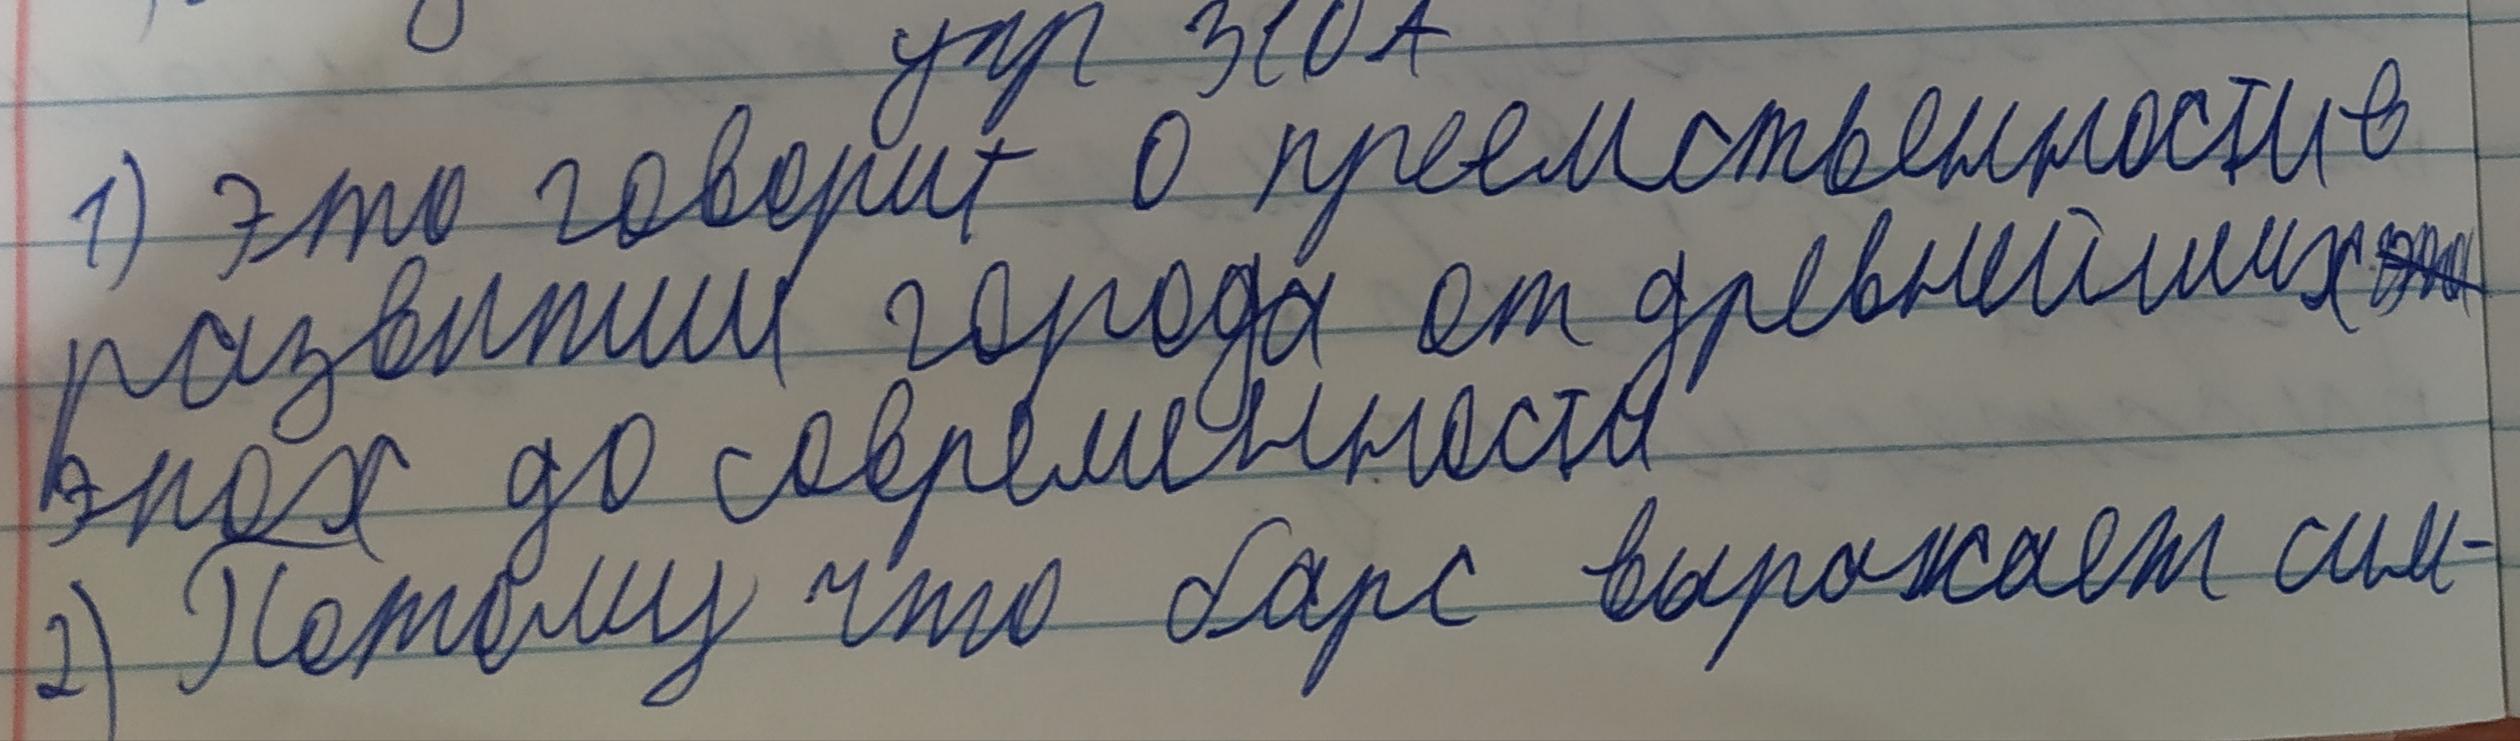 упр 310А
1) это говорит о преемственности в
развитии города от древнейших
эпох до современности
2) Потому что барс выражает сим-